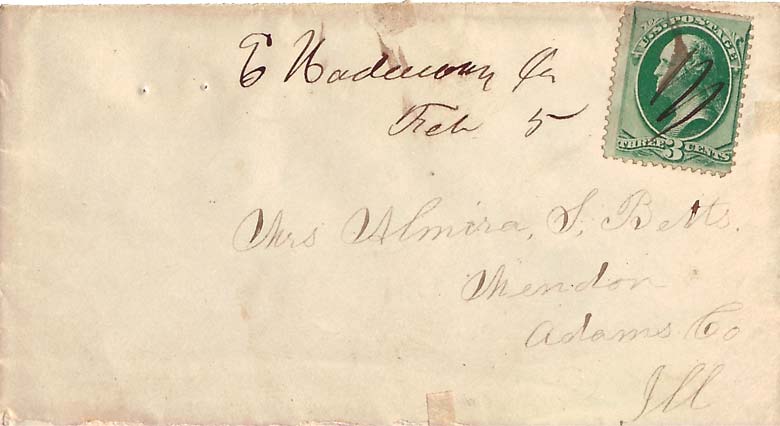 Feb 5
U.S. POSTAGE
THREE 3 CENTS
Mrs Almira, S, Betts.
Mendon
Adams Co
Ill